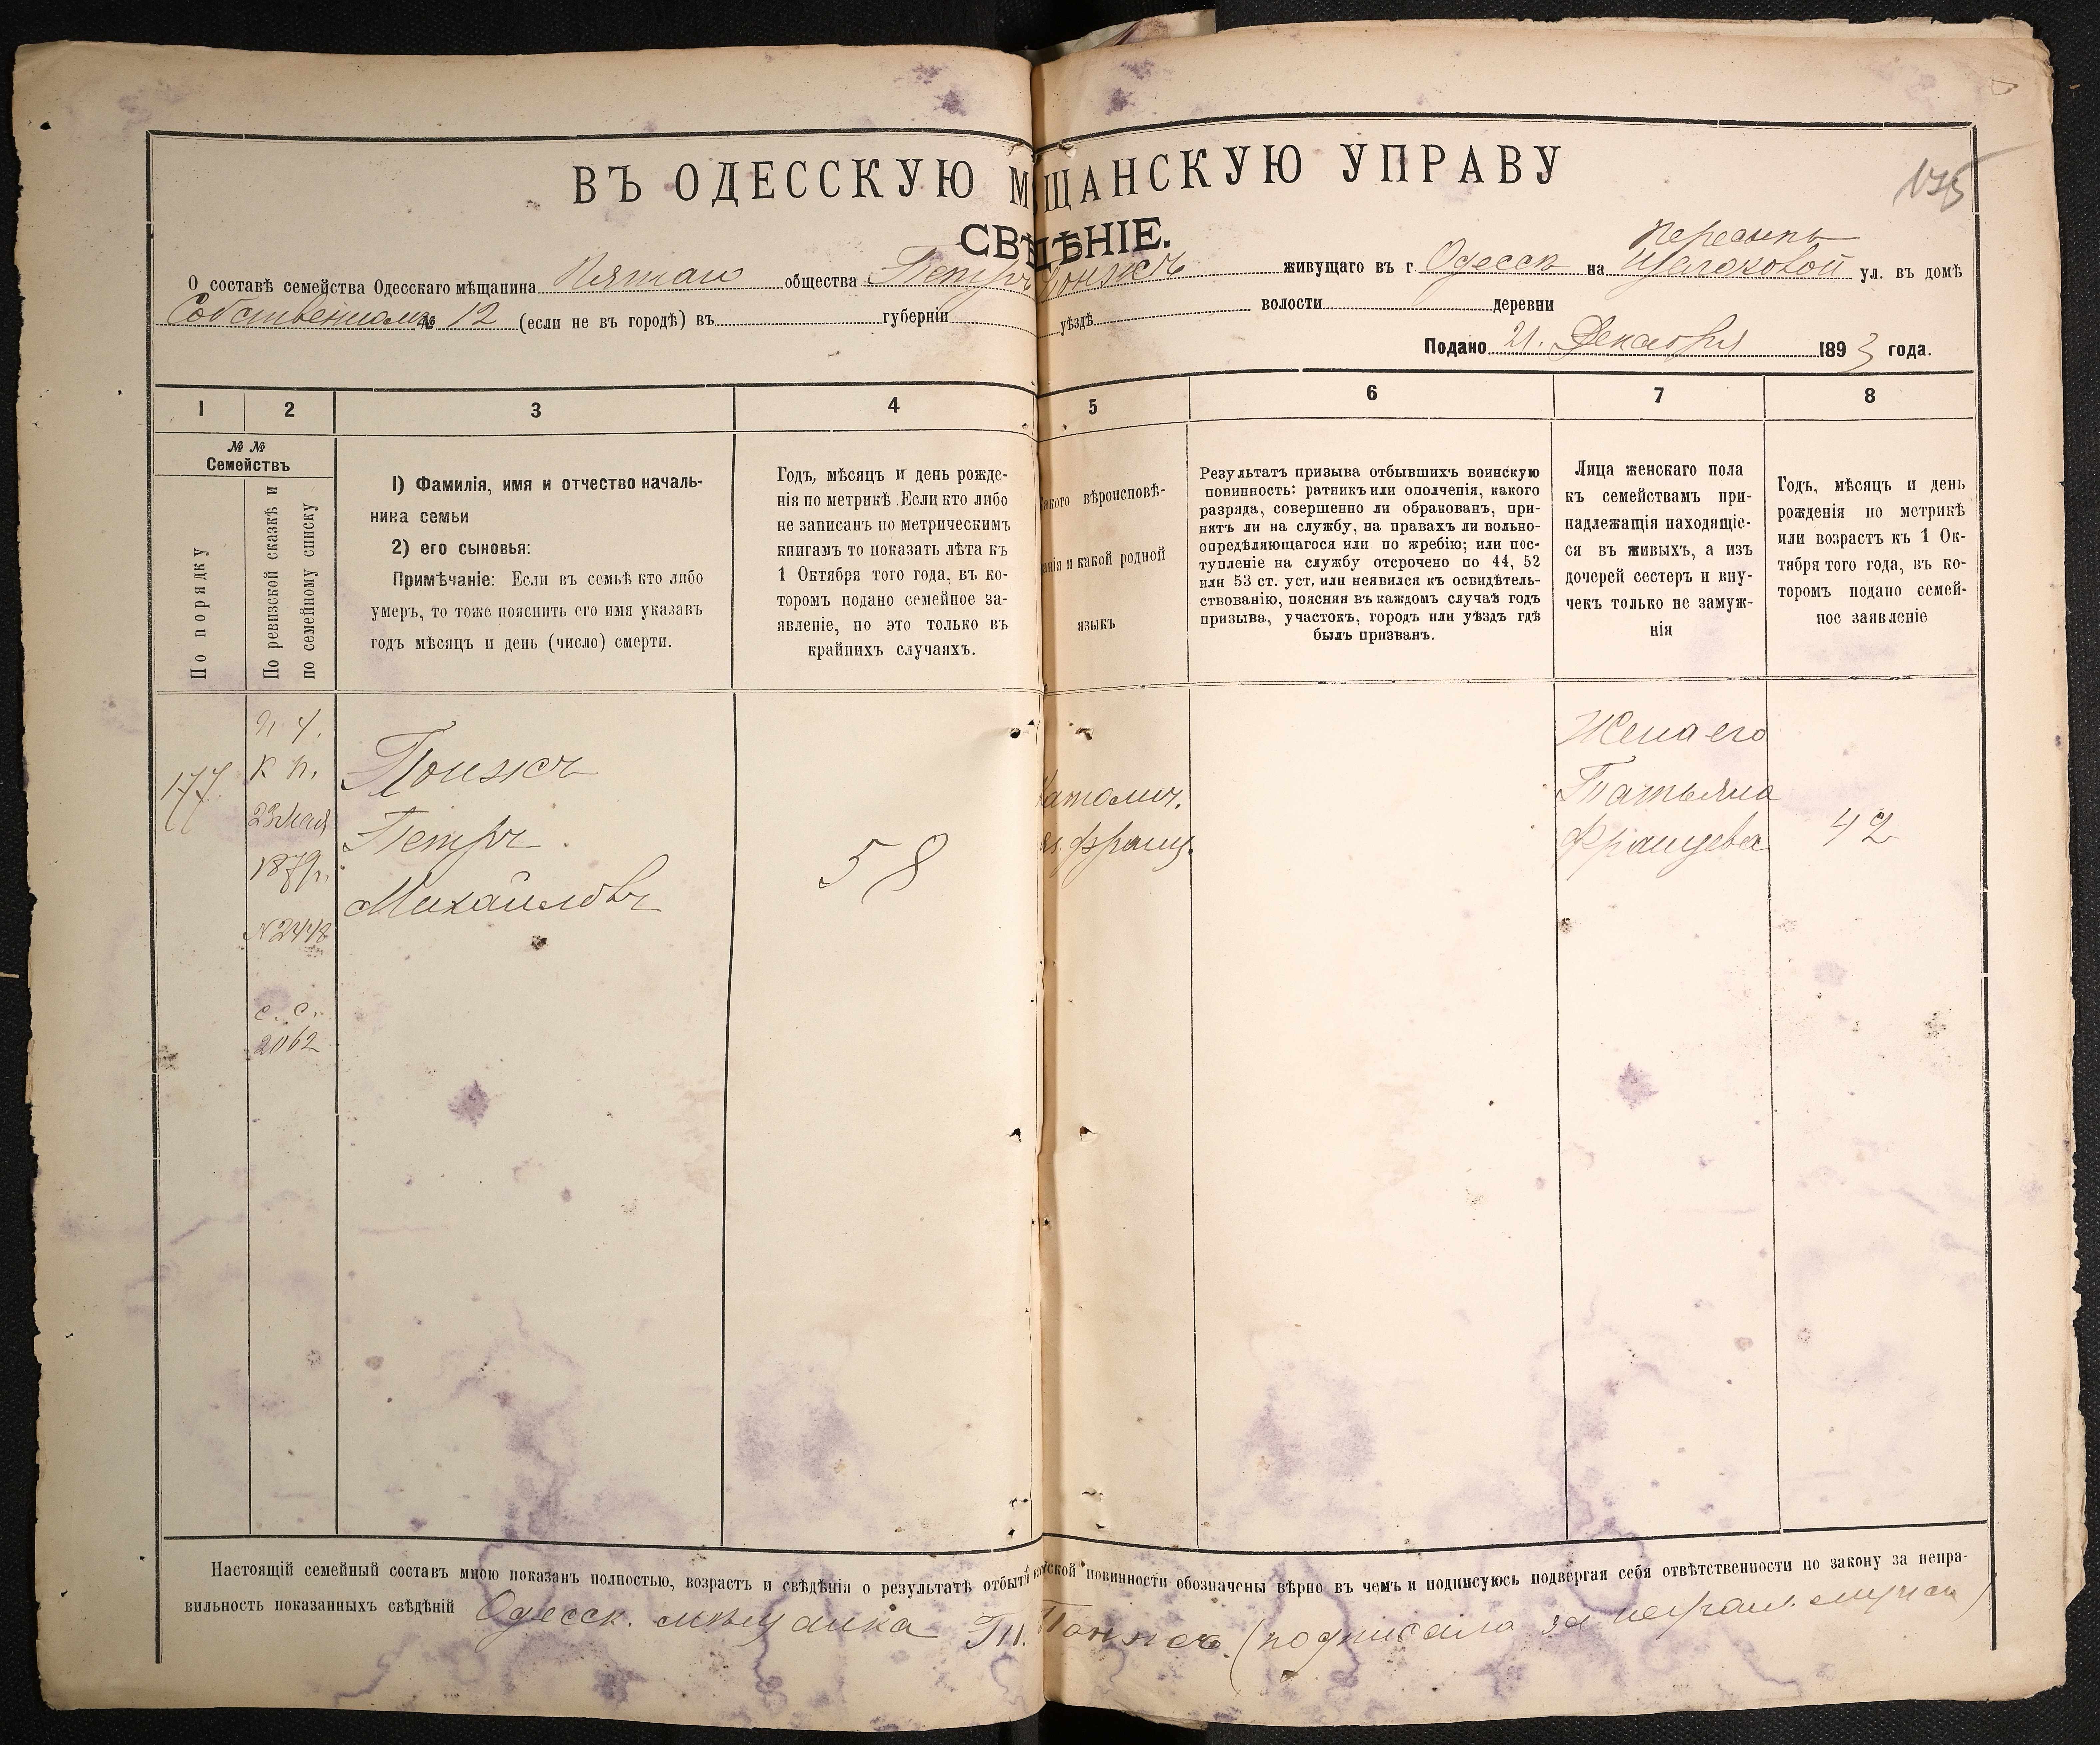 175
ВЪ ОДЕССКУЮ МѢЩАНСКУЮ УПРАВУ
СВѢДѢНІЕ.
Пересыпь
О составѣ семейства Одесскаго мѣщанина общества Петръ живущаго въ г Одессѣ на ул. въ домѣ
Собственномъ № 12 (если не въ городѣ) въ губерніи уѣздѣ волости деревни
Подано 21. Декабря 1893 года.
1 2 3 4 5 6 7 8
№ № Семействъ
По порядку
По ревизской сказкѣ и
по семейному списку
1) Фамилія, имя и отчество началь-
ника семьи
2) его сыновья:
Примѣчаніе: Если въ семьѣ кто либо
умеръ, то тоже пояснить его имя указавъ
годъ мѣсяцъ и день (число) смерти.
Годъ, мѣсяцъ и день рожде-
нія по метрикѣ. Если кто либо
не записанъ по метрическимъ
книгамъ то показать лѣта къ
1 Октября того года, въ ко-
торомъ подано семейное за-
явленіе, но это только въ
крайнихъ случаяхъ.
Какого вѣроисповѣ-
данія и какой родной
языкъ
Результатъ призыва отбывшихъ воинскую
повинность: ратникъ или ополченія, какого
разряда, совершенно ли обракованъ, при-
нятъ ли на службу, на правахъ ли вольно-
опредѣляющагося или по жребію; или пос-
тупленіе на службу отсрочено по 44, 52
или 53 ст. уст, или неявился къ освидѣтель-
ствованію, поясняя въ каждомъ случаѣ годъ
призыва, участокъ, городъ или уѣздъ гдѣ
былъ призванъ.
Лица женскаго пола
къ семействамъ при-
надлежащія находящіе-
ся въ живыхъ, а изъ
дочерей сестеръ и вну-
чекъ только не замуж-
нія
Годъ, мѣсяцъ и день
рожденія по метрикѣ
или возрастъ къ 1 Ок-
тября того года, въ ко-
торомъ подано семей-
ное заявленіе
177
п ч.
к п.
23 Мая
1879г.
№ 2448
с. с.
2062
Понжъ
Петръ
Михайловъ
58
Католич.
яз. франц.
Жена его
Татьяна
Францева
42
Настоящій семейный составъ мною показанъ полностью, возрастъ и свѣдѣнія о результатѣ отбытія воинской повинности обозначены вѣрно въ чемъ и подписуюсь подвергая себя отвѣтственности по закону за непра-
вильность показанныхъ свѣдѣній Одесск. мѣщанка Т. Понжъ (подписала за неграм. мужа)